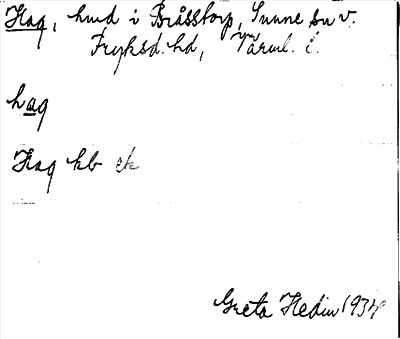 Hag, hmd i Bråsstorp, Sunne sn v.
Fryksd. hd, Värml. l.
hag
Hag kb ek
Greta Hedin 1934